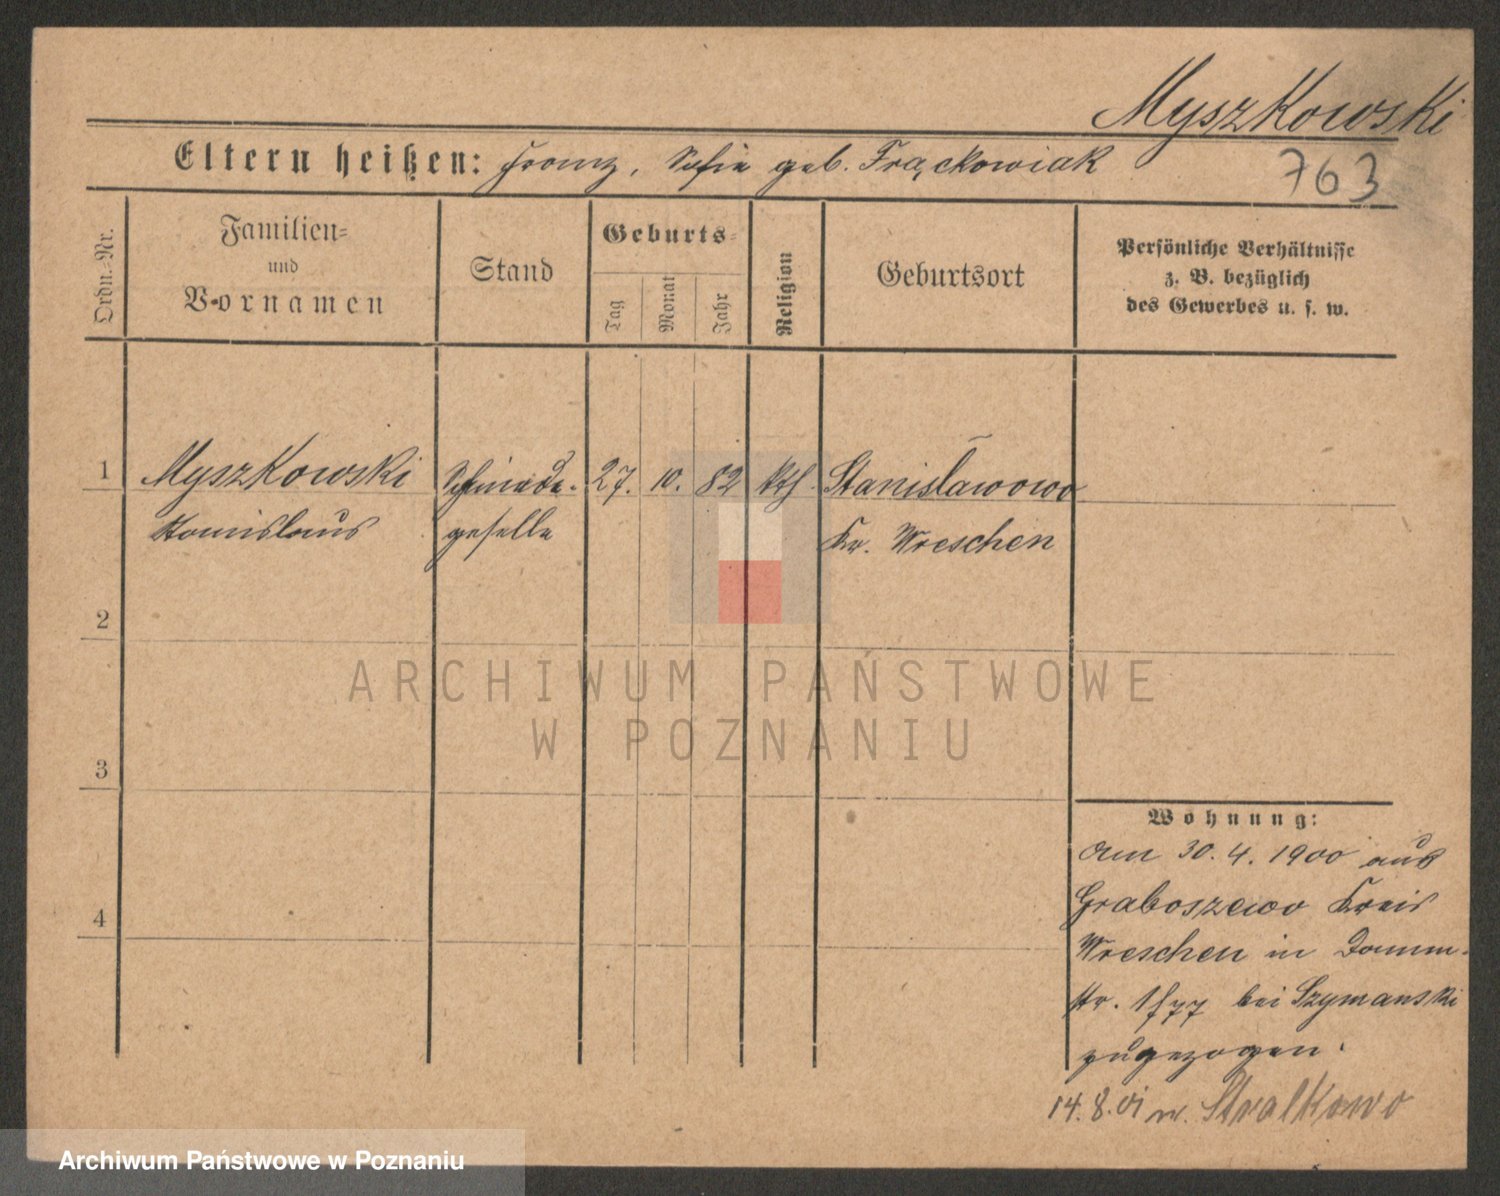 Myszkowski
Eltern heißen: Franz, Sofie geb. Frąckowiak
763
Ordn.-Nr.
Familien-
und
Vornamen
Stand
Geburts-
Tag
Monat
Jahr
Religion
Geburtsort
Persönliche Verhältnisse
z. B. bezüglich
des Gewerbes u. s. w.
1 Myszkowski Schmiede- 27. 10. 82 kth. Stanisławowo
Stanislaus geselle Kr. Wreschen
2
3
4
Wohnung:
Am 30. 4. 1900 aus
Graboszewo Kreis
Wreschen in Damm-
str. 1/77 bei Szymanski
zugezogen.
14. 8. 01 n. Stralkowo
ARCHIWUM PAŃSTWOWE
W POZNANIU
Archiwum Państwowe w Poznaniu